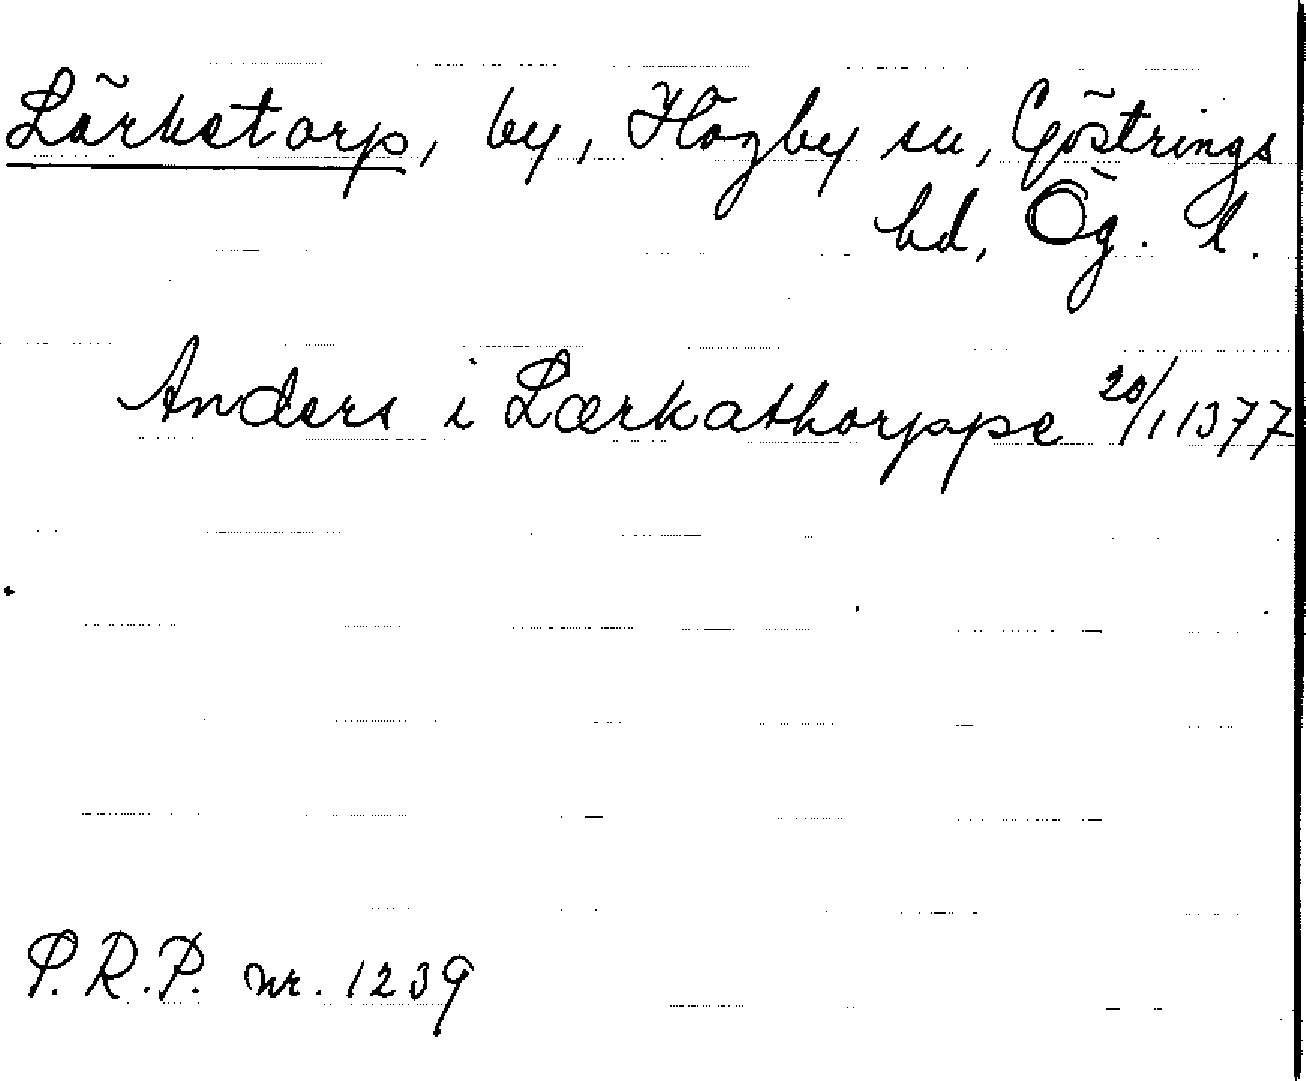 Lärketorp, by, Högby sn, Göstrings
hd, Ög. l.
Anders i Lærkathorppe 20/1 1377
P.R.P. nr. 1239